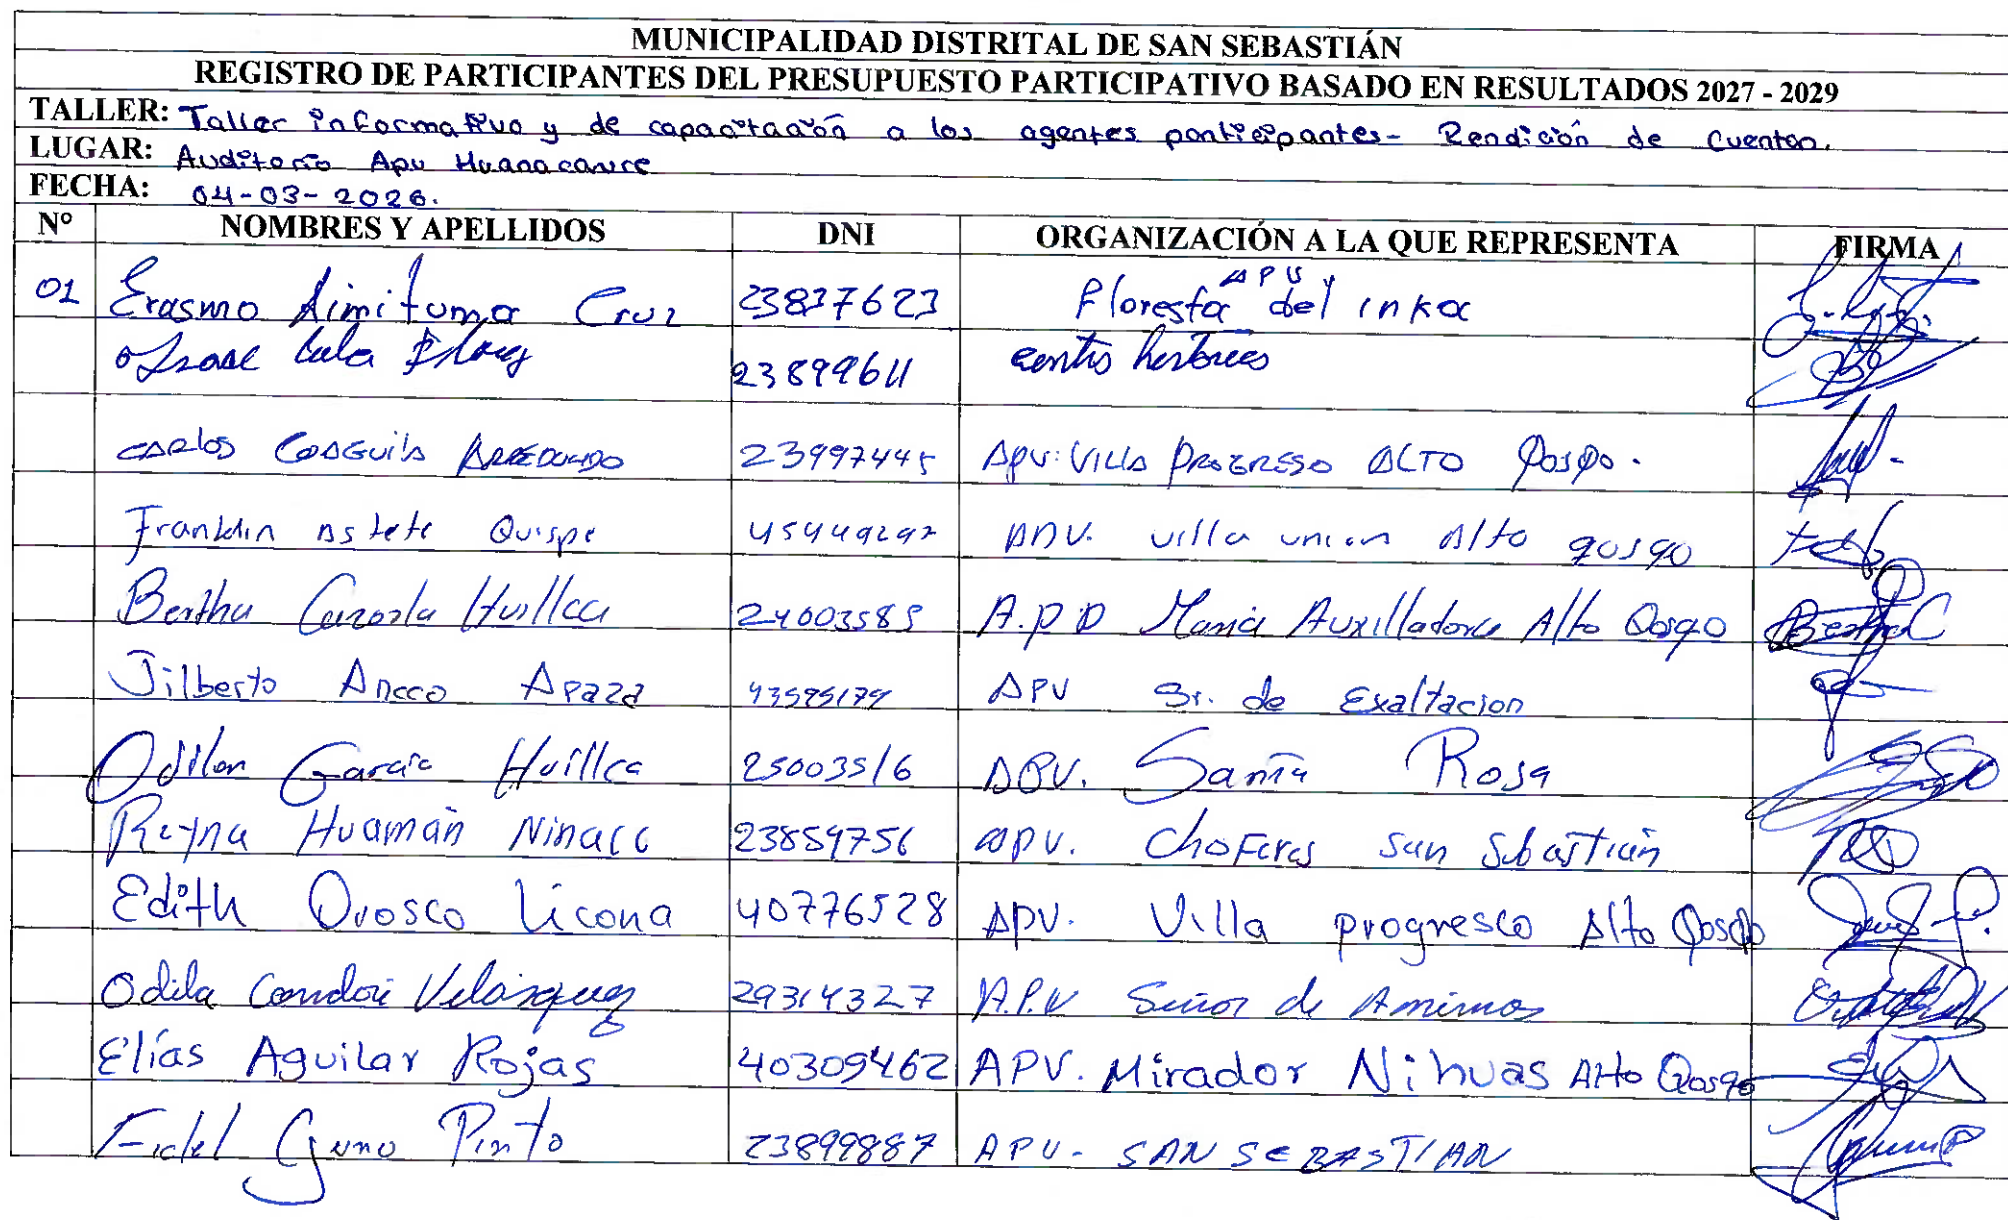 MUNICIPALIDAD DISTRITAL DE SAN SEBASTIÁN
REGISTRO DE PARTICIPANTES DEL PRESUPUESTO PARTICIPATIVO BASADO EN RESULTADOS 2027 - 2029
TALLER: Taller informativo y de capacitación a los agentes participantes - Rendición de Cuentas.
LUGAR: Auditorio Apu Huanacaure
FECHA: 04-03-2026.
N° NOMBRES Y APELLIDOS DNI ORGANIZACIÓN A LA QUE REPRESENTA FIRMA
01 Erasmo Aimituma Cruz 23837623 APV Floresta del inka
23899611 centro
CARLOS COAGUILA ARREDONDO 23997445 APV. VILLA PROGRESO ALTO Qosqo.
Franklin Astete Quispe 45449297 APV. villa union Alto qosqo
Bertha Huillca 24003585 A.P.D Maria Auxilladora Alto Qosqo
Jilberto Ancco Apaza APV Sr. de Exaltacion
Odilon Garcia Huillca 25003516 APV. Santa Rosa
Reyna Huamán Ninacc 23859756 APV. Choferes San Sebastián
Edith Orosco Licona 40776528 APV. Villa progreso Alto Qosqo
Odila Condori Velásquez 29314327 A.P.V Señor de
Elías Aguilar Rojas 40309462 APV. Mirador Nihuas Alto Qosqo
Fidel Pinto 23899887 APV. SAN SEBASTIAN